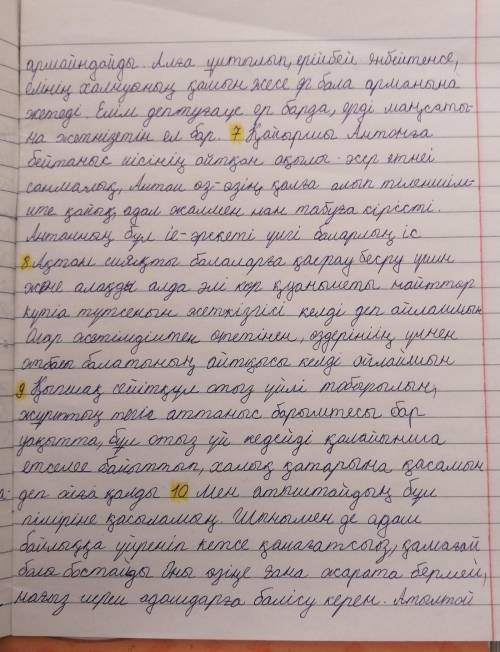 армайндайды. Алға ұмтылып, ерінбей еңбектенсе,
елінің халқының қамын жесе әр бала арманына
жетеді. Елім деп туғаң ер барда, ерді мақсаты-
на жеткізетін ел бар. 7 Қайыршы Антонға
бейтаныс кісінің айтқан ақылы әсер етпеі
санмалық, Антон өз-өзін қолға алып тіленшілік-
ке қайық, адал жалмен нан табуға кірісті.
Антонның бұл іс-әрекеті үлгі боларлың іс
8 Ақтан сияқты балаларға қасрау беру үшін
және алацды алда әлі көр қуанышты найттар
күтіп тұрсенын жеткізгісі келді деп ойлаймын
Олар жетімдіктен өтетінен, өздерінінң үннен
отбасы болатының айтқысы келді ойлаймын
9 Қыпшақ сейітқұл отыз үйлі тобырылын,
жұрттың тегіс аттаныс барымтасы бар
уақытта, бұл отыз үй кедейді қалайынша
етселее байыттып, халық қатарына қасамын
деп ойға қалды 10 Мен атымтайдың бұл
пікіріне қосыламын. Шынымен де адам
байлыққа үйреніп кетсе қанағатсыз, қамағай
бола бостайды Оны өзіңе ғана жарата бермей,
нағыз керек адамдарға бөлісу керек. Атымтай